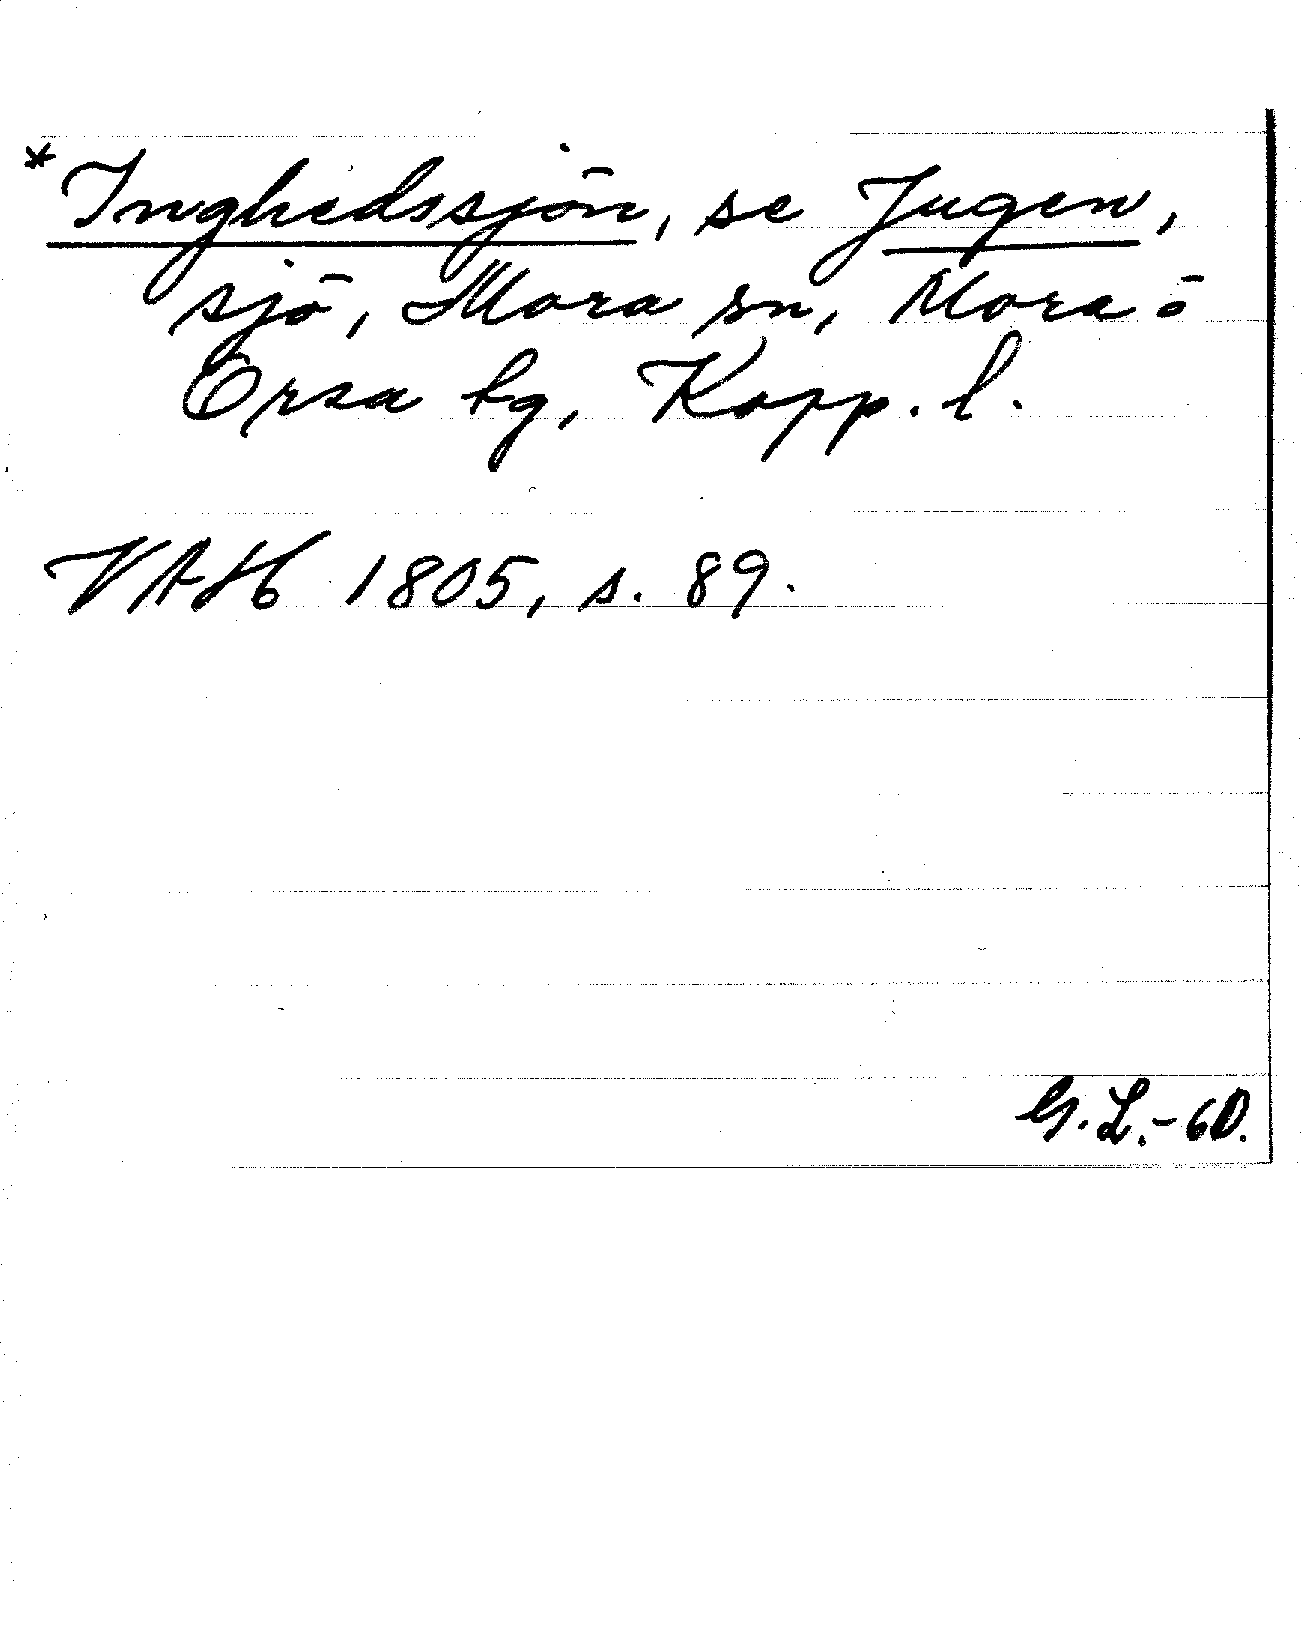 *Inghedssjön, se Jugen,
sjö, Mora sn, Mora o
Orsa tg, Kopp. l.
VAH 1805, s. 89.
G. L. - 60.